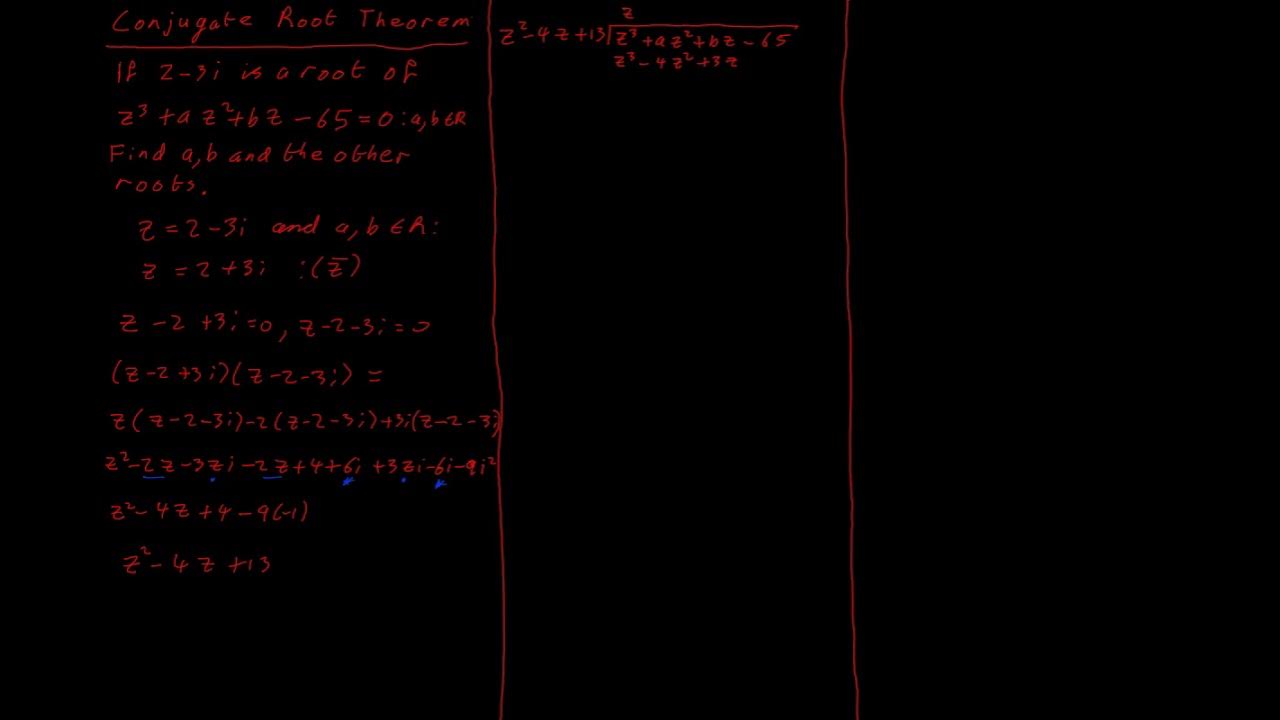 Conjugate Root Theorem
If 2-3i is a root of
z³+az²+bz-65=0:a,b∈R
Find a,b and the other
roots.
z=2-3i and a,b∈R:
z=2+3i :(z̅)
z-2+3i=0, z-2-3i=0
(z-2+3i)(z-2-3i)=
z(z-2-3i)-2(z-2-3i)+3i(z-2-3i)
z²-2z-3zi-2z+4+6i+3zi-6i-9i²
z²-4z+4-9(-1)
z²-4z+13
z
z²-4z+13 z³+az²+bz-65
z³-4z²+3z